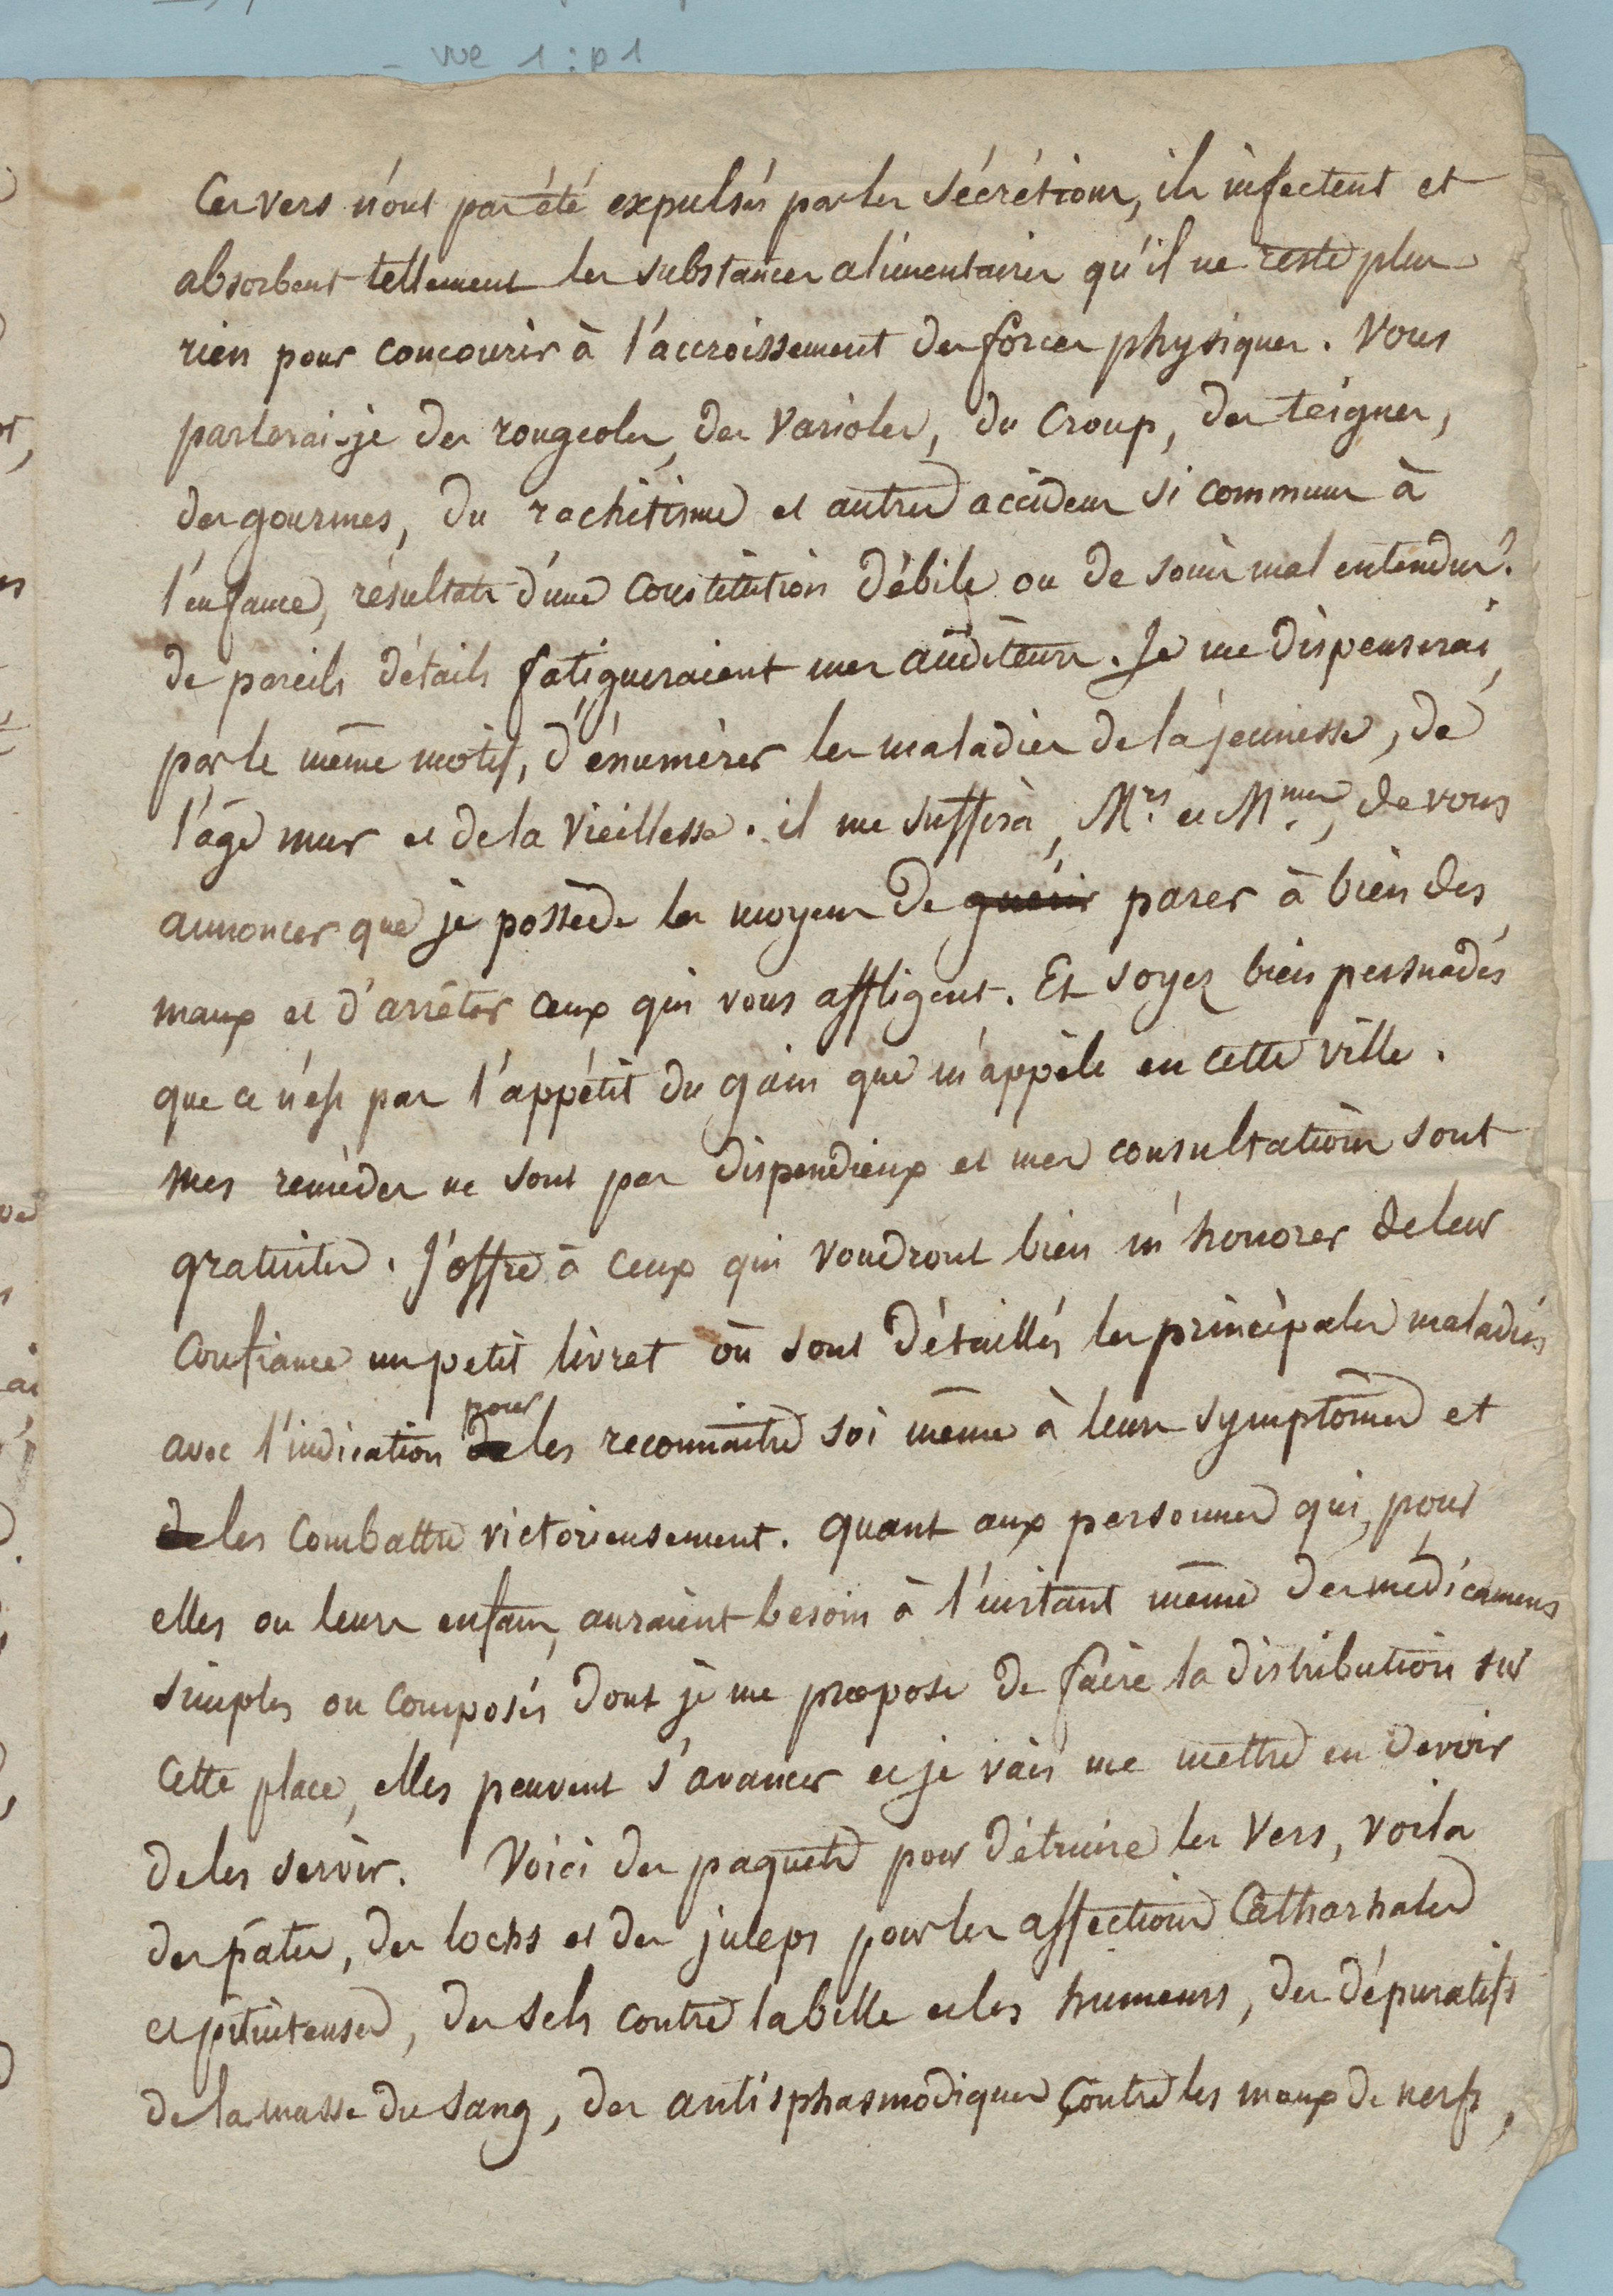 - vue 1 : p 1
Ces vers n'ont pas été expulsés par les sécrétions, ils infectent et
absorbent tellement les substances alimentaires qu'il ne reste plus
rien pour concourir à l'accroissement des forces physiques. Vous
parlerai-je des rougeoles, des varioles, du Croup, des teignes,
des gourmes, du rachitisme et autres accidens si communs à
l'enfance, résultats d'une Constitution débile ou de soins mal entendus?
de pareils détails fatigueraient mes auditeurs. Je me dispenserai,
par le même motif, d'énumérer les maladies de la jeunesse, de
l'âge mur et de la vieillesse. il me suffira, Mrs et Mmes, de vous
annoncer que je possède les moyens de guérir parer à bien des
maux et d'arrêter ceux qui vous affligent. Et soyez bien persuadés
que ce n'est pas l'appétit du gain que m'appèle en cette ville.
mes remèdes ne sont pas dispendieux et mes consultations sont
gratuites. J'offre à ceux qui voudront bien m'honorer de leur
Confiance un petit livret où sont détaillés les principales maladies
pour
avec l'indication de les reconnaître soi même à leurs symptômes et
de les Combattre victorieusement. quant aux personnes qui, pour
elles ou leurs enfans, auraient besoin à l'instant même des médicamens
simples ou composés dont je me propose de faire la distribution sur
Cette place, elles peuvent s'avancer et je vais me mettre en devoir
de les servir. Voici des paquets pour détruire les Vers, voila
des pâtes, des lochs et des juleps pour les affections Catharhales
et pituiteuses, des sels contre la bille et les humeurs, des dépuratifs
de la masse du sang, des antisphasmodiques Contre les maux de nerfs,